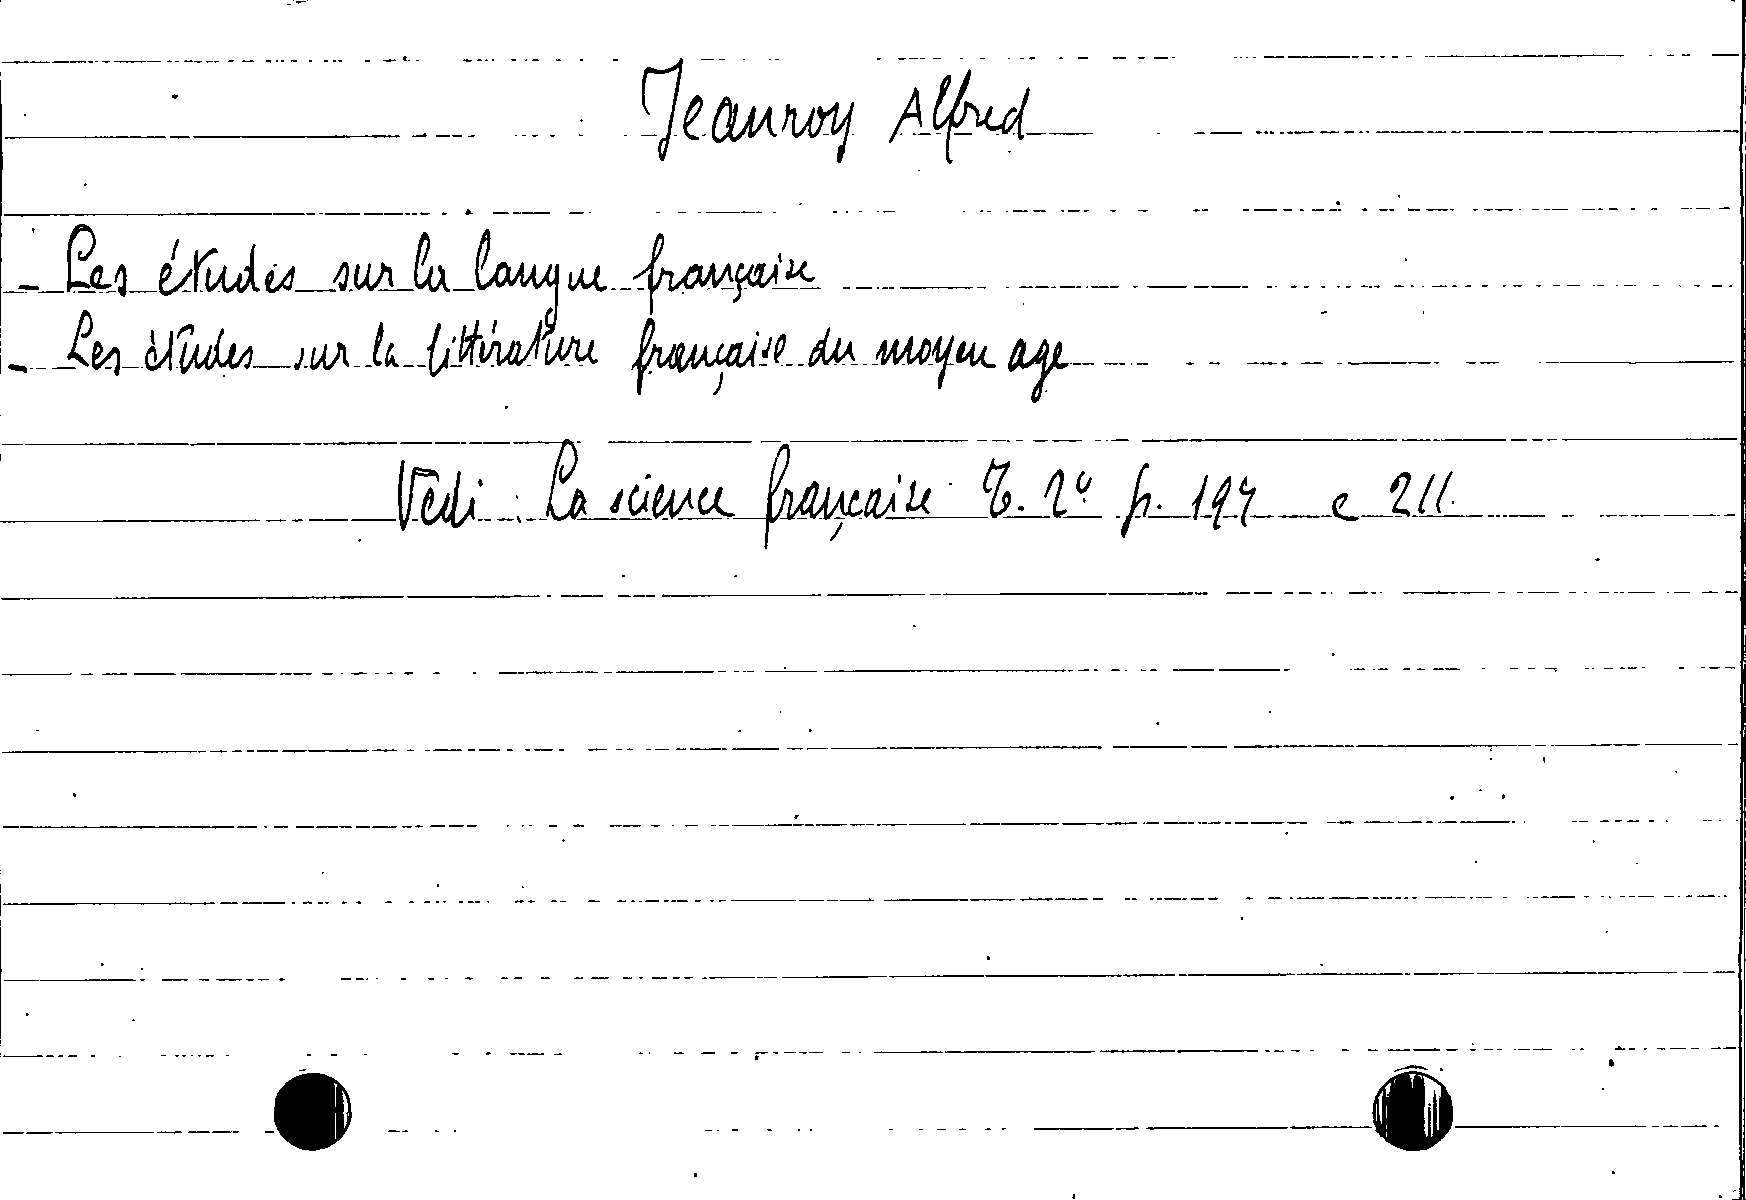 Jeanroy Alfred
- Les études sur la langue française
- Les études sur la littérature française du moyen age
Vedi : La science française T. 2° p. 197 e 211.